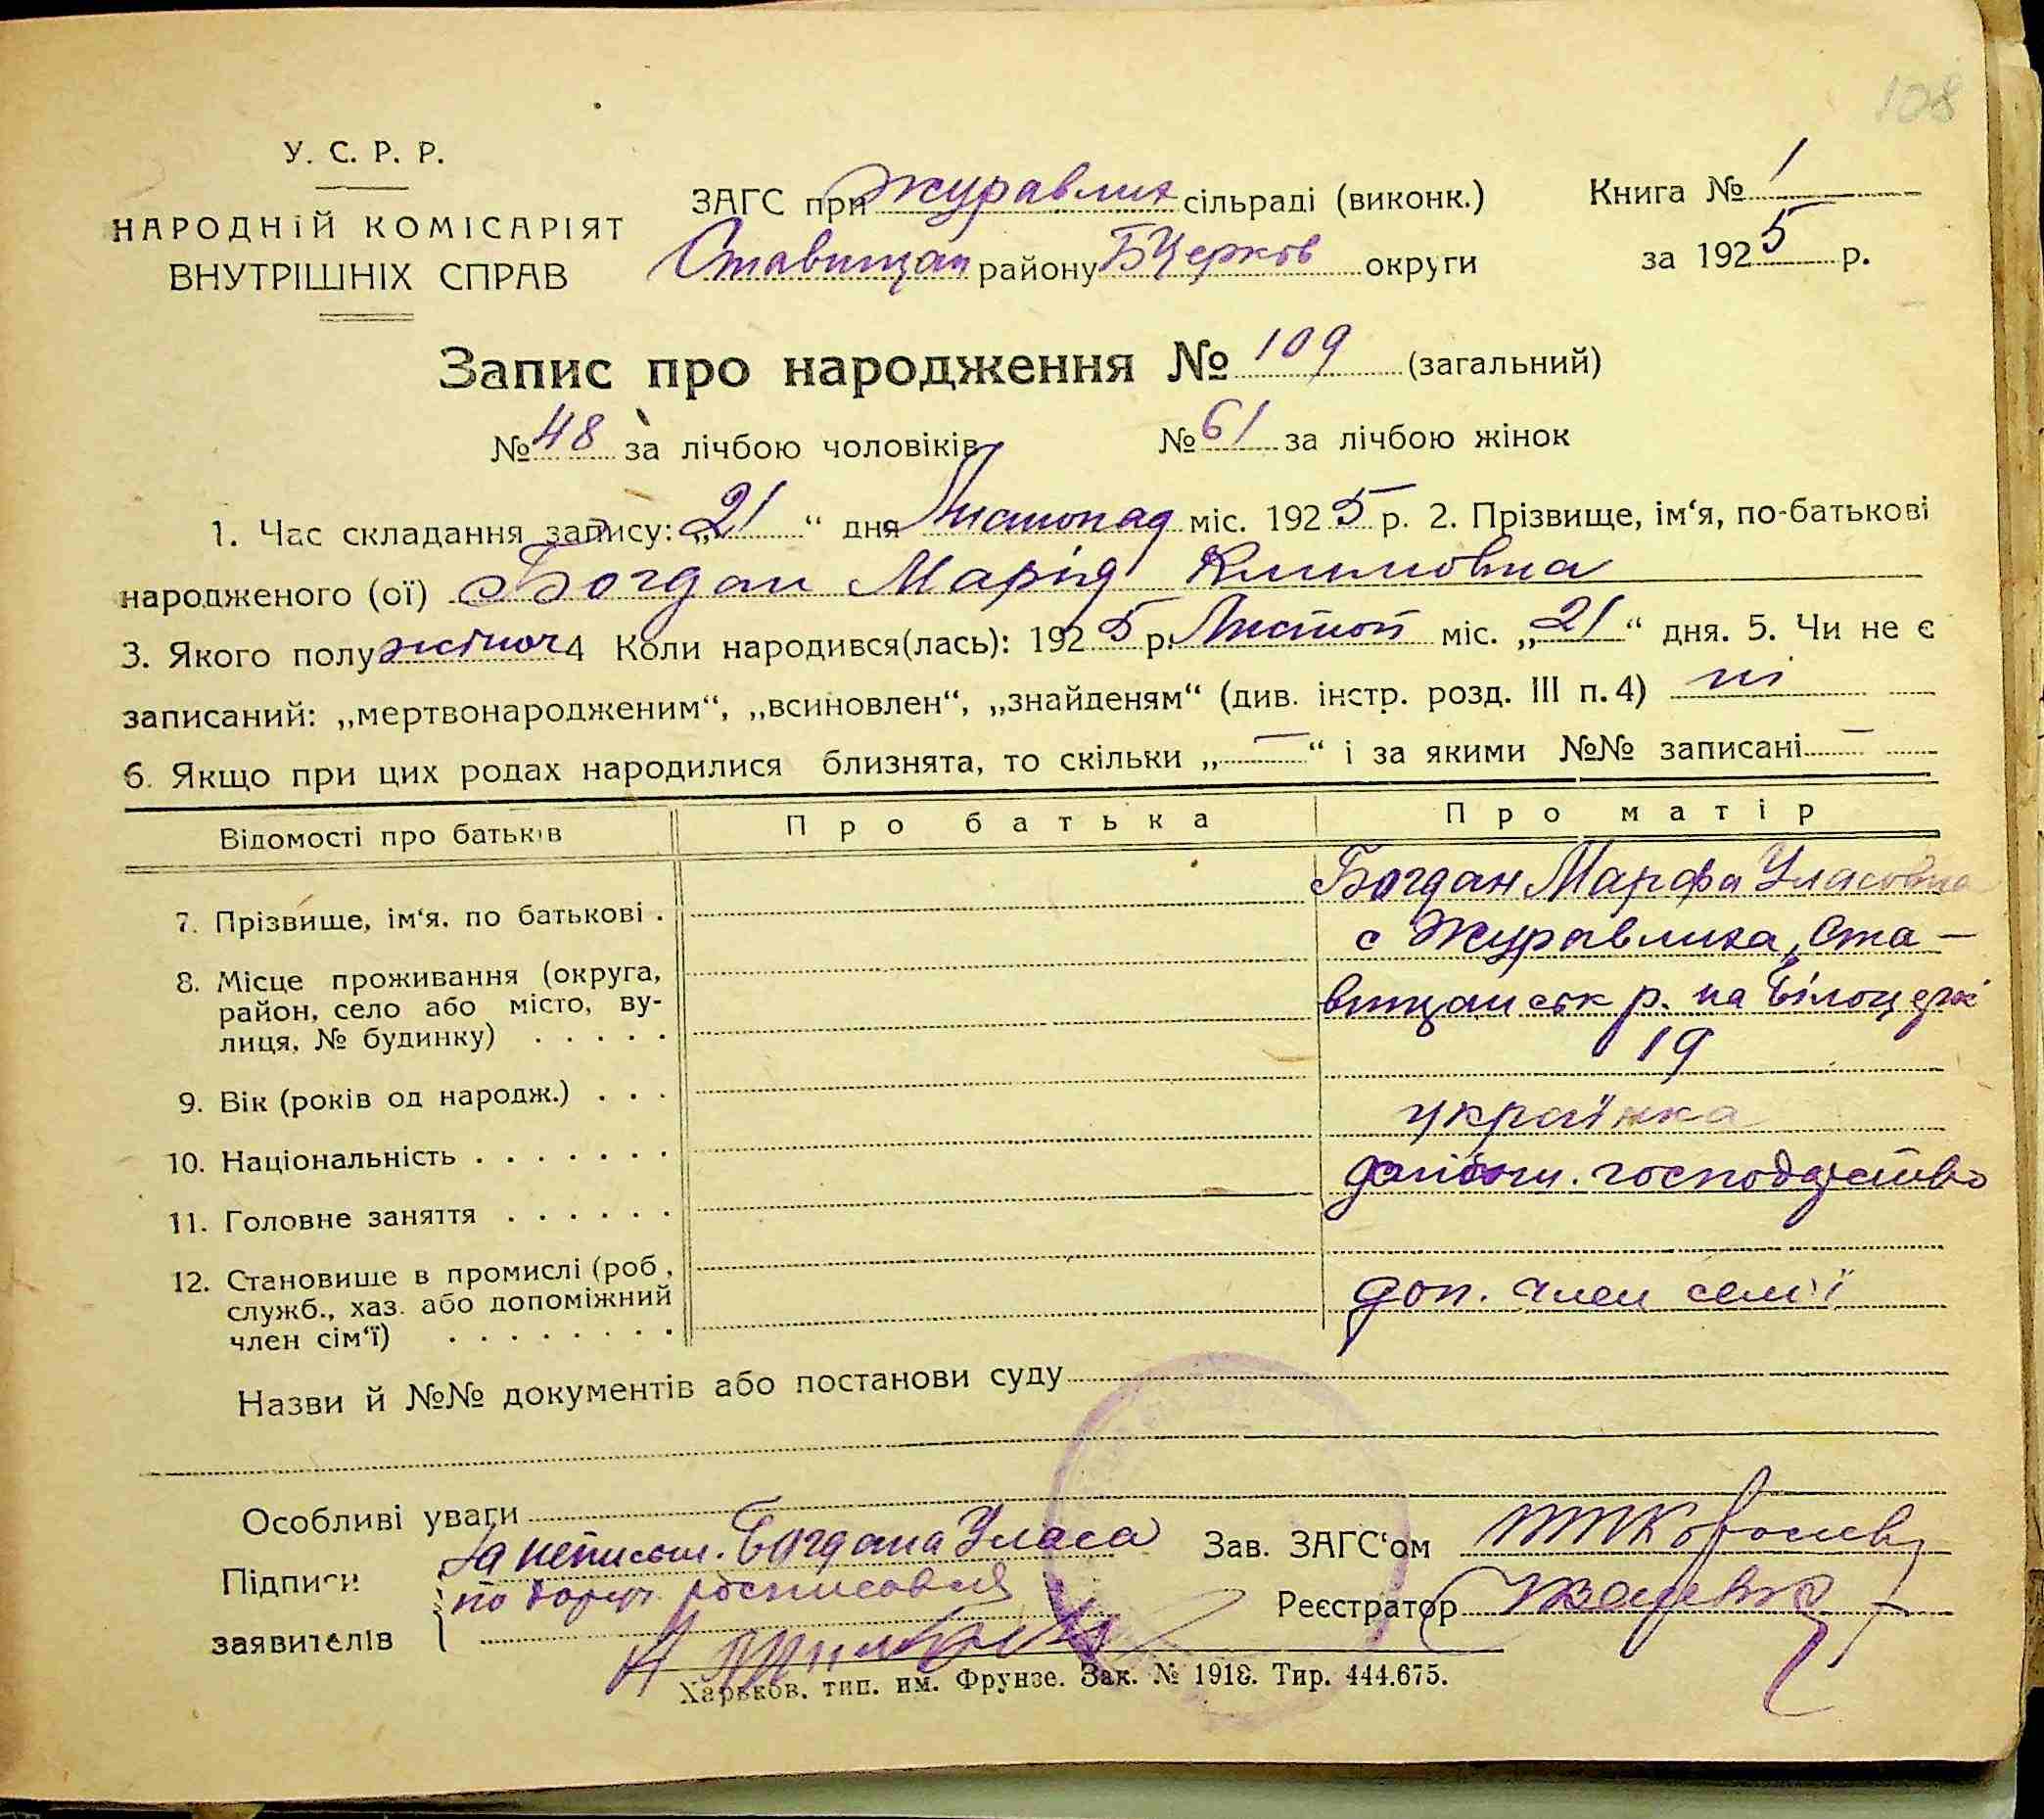 108
У. С. Р. Р.
НАРОДНІЙ КОМІСАРІЯТ
ВНУТРІШНІХ СПРАВ
ЗАГС при Журавлих сільраді (виконк.)
Ставищан району БЦерков округи
Книга № 1
за 1925 р.
Запис про народження № 109 (загальний)
№ 48 за лічбою чоловіків № 61 за лічбою жінок
1. Час складання запису: „21“ дня Листопад міс. 1925 р. 2. Прізвище, ім‘я, по-батькові
народженого (ої) Богдан Марія Климовна
3. Якого полу жіноч 4 Коли народився(лась): 1925 р. Листоп міс. „21“ дня. 5. Чи не є
записаний: „мертвонародженим“, „всиновлен“, „знайденям“ (див. інстр. розд. III п. 4) ні
6. Якщо при цих родах народилися близнята, то скільки „—“ і за якими №№ записані —
Відомості про батьків Про батька Про матір
7. Прізвище, ім‘я, по батькові . Богдан Марфа Уласовна
8. Місце проживання (округа, с Журавлиха, Ста-
район, село або місто, ву-
вищанськ р. на Білоцерк
лиця, № будинку) . . . . .
9. Вік (років од народж.) . . . 19
10. Національність . . . . . . . українка
11. Головне заняття . . . . . . господарство
12. Становище в промислі (роб.,
служб., хаз. або допоміжний доп. член сем'ї
член сім‘ї) . . . . . . . .
Назви й №№ документів або постанови суду
Особливі уваги
Підписи За неписьм. Богдана Уласа
по доруч. росписовся
заявителів
Зав. ЗАГС‘ом
Реєстратор
Харьков. тип. им. Фрунзе. Зак. № 1918. Тир. 444.675.